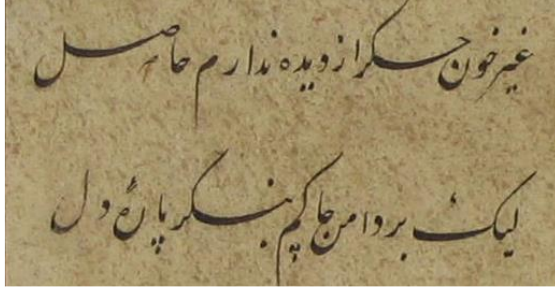 غیر خون جگر از دیده ندارم حاصل
لیک بر دامن چاکم بنگر پارهٔ دل